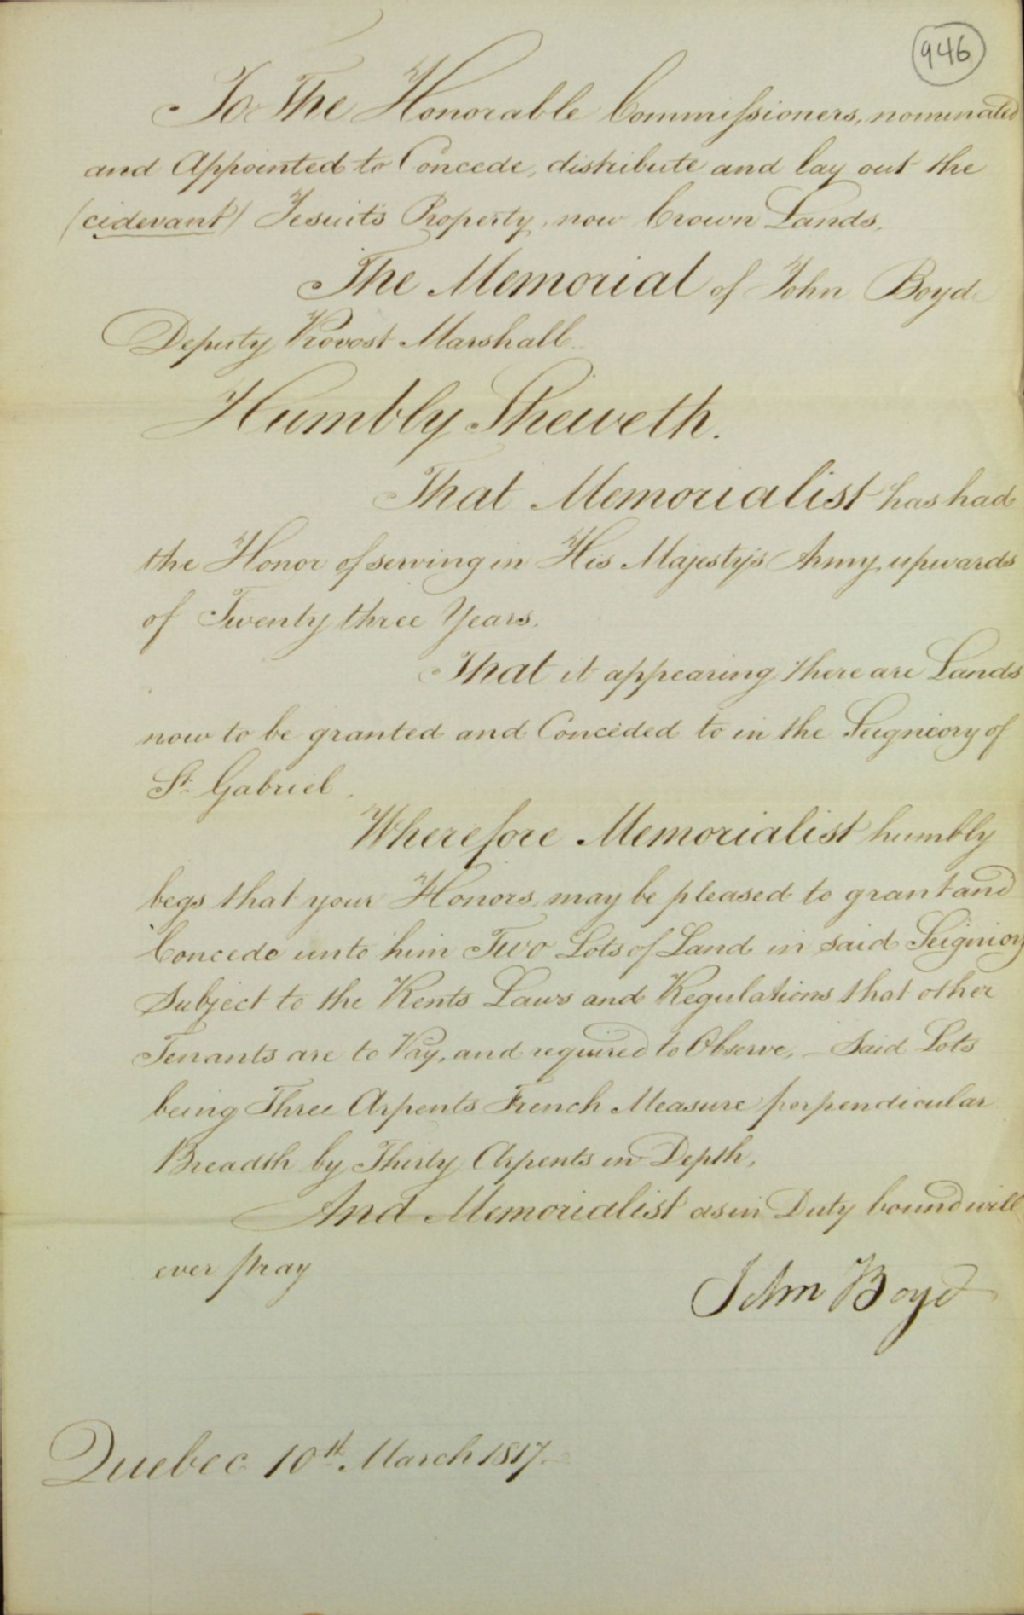 946
To The Honorable Commissioners, nominated
and Appointed to Concede, distribute and lay out the
(cidevant) Jesuits Property, now Crown Lands.
The Memorial of John Boyd
Deputy Provost Marshall.
Humbly Sheweth.
That Memorialist has had
the Honor of serving in His Majesty's Army, upwards
of Twenty three Years.
That it appearing there are Lands
now to be granted and Conceded to in the Seigniory of
St. Gabriel.
Wherefore Memorialist humbly
begs that your Honors, may be pleased to grant and
Concede unto him Two Lots of Land in said Seigniory
Subject to the Rents Laws and Regulations that other
Tenants are to Pay, and required to Observe, - Said Lots
being Three Arpents French Measure perpendicular
Breadth by Thirty Arpents in Depth,
And Memorialist as in Duty bound will
ever pray
John Boyd
Quebec 10th. March 1817-